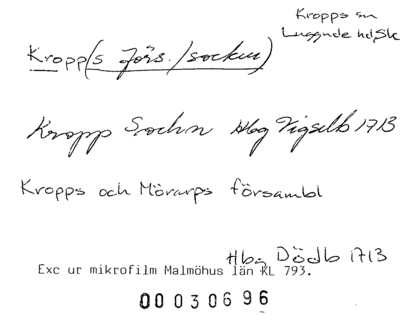 Kropps sn
Luggude hd, Sk
Kropp(s förs./socken)
Kropp Sochn Hbg Vigselb 1713
Kropps och Mörarps försambl
Hbg Dödb 1713
Exc ur mikrofilm Malmöhus län KL 793.
00030696